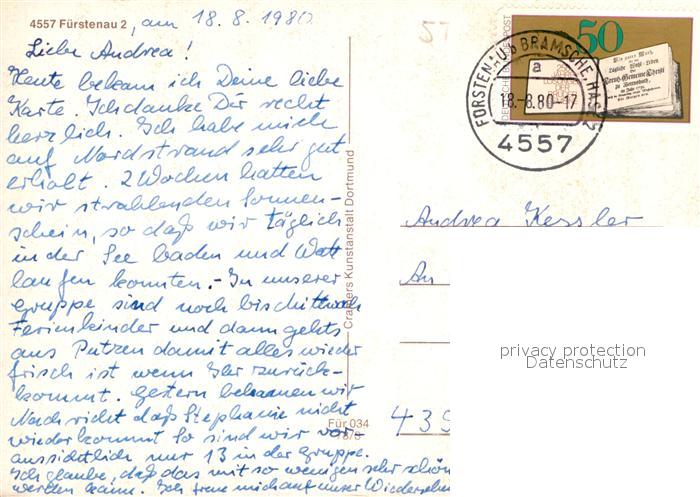 4557 Fürstenau 2, am 18.8.1980
Liebe Andrea!
Heute bekam ich Deine liebe
Karte. Ich danke Dir recht
herzlich. Ich habe mich
auf Nordstrand sehr gut
erholt. 2 Wochen hatten
wir strahlenden Sonnen-
schein, so daß wir täglich
in der See baden und Watt
laufen konnten. - In unserer
Gruppe sind noch bis Mittwoch
Ferienkinder und dann gehts
ans Putzen damit alles wieder
frisch ist wenn Ihr zurück-
kommt. Gestern bekamen wir
Nachricht daß Stephanie nicht
wiederkommt so sind wir vor-
aussichtlich nur 13 in der Gruppe.
Ich glaube, daß das mit so wenigen sehr schön
werden kann. Ich freue mich auf unser Wiedersehen
Crammers Kunstanstalt Dortmund
Für 034
DEUTSCHE BUNDESPOST
50
FÜRSTENAU, BRAMSCHE, HASE 2
a
18.-8.80-17
4557
Andrea Kessler
An
privacy protection
Datenschutz
439